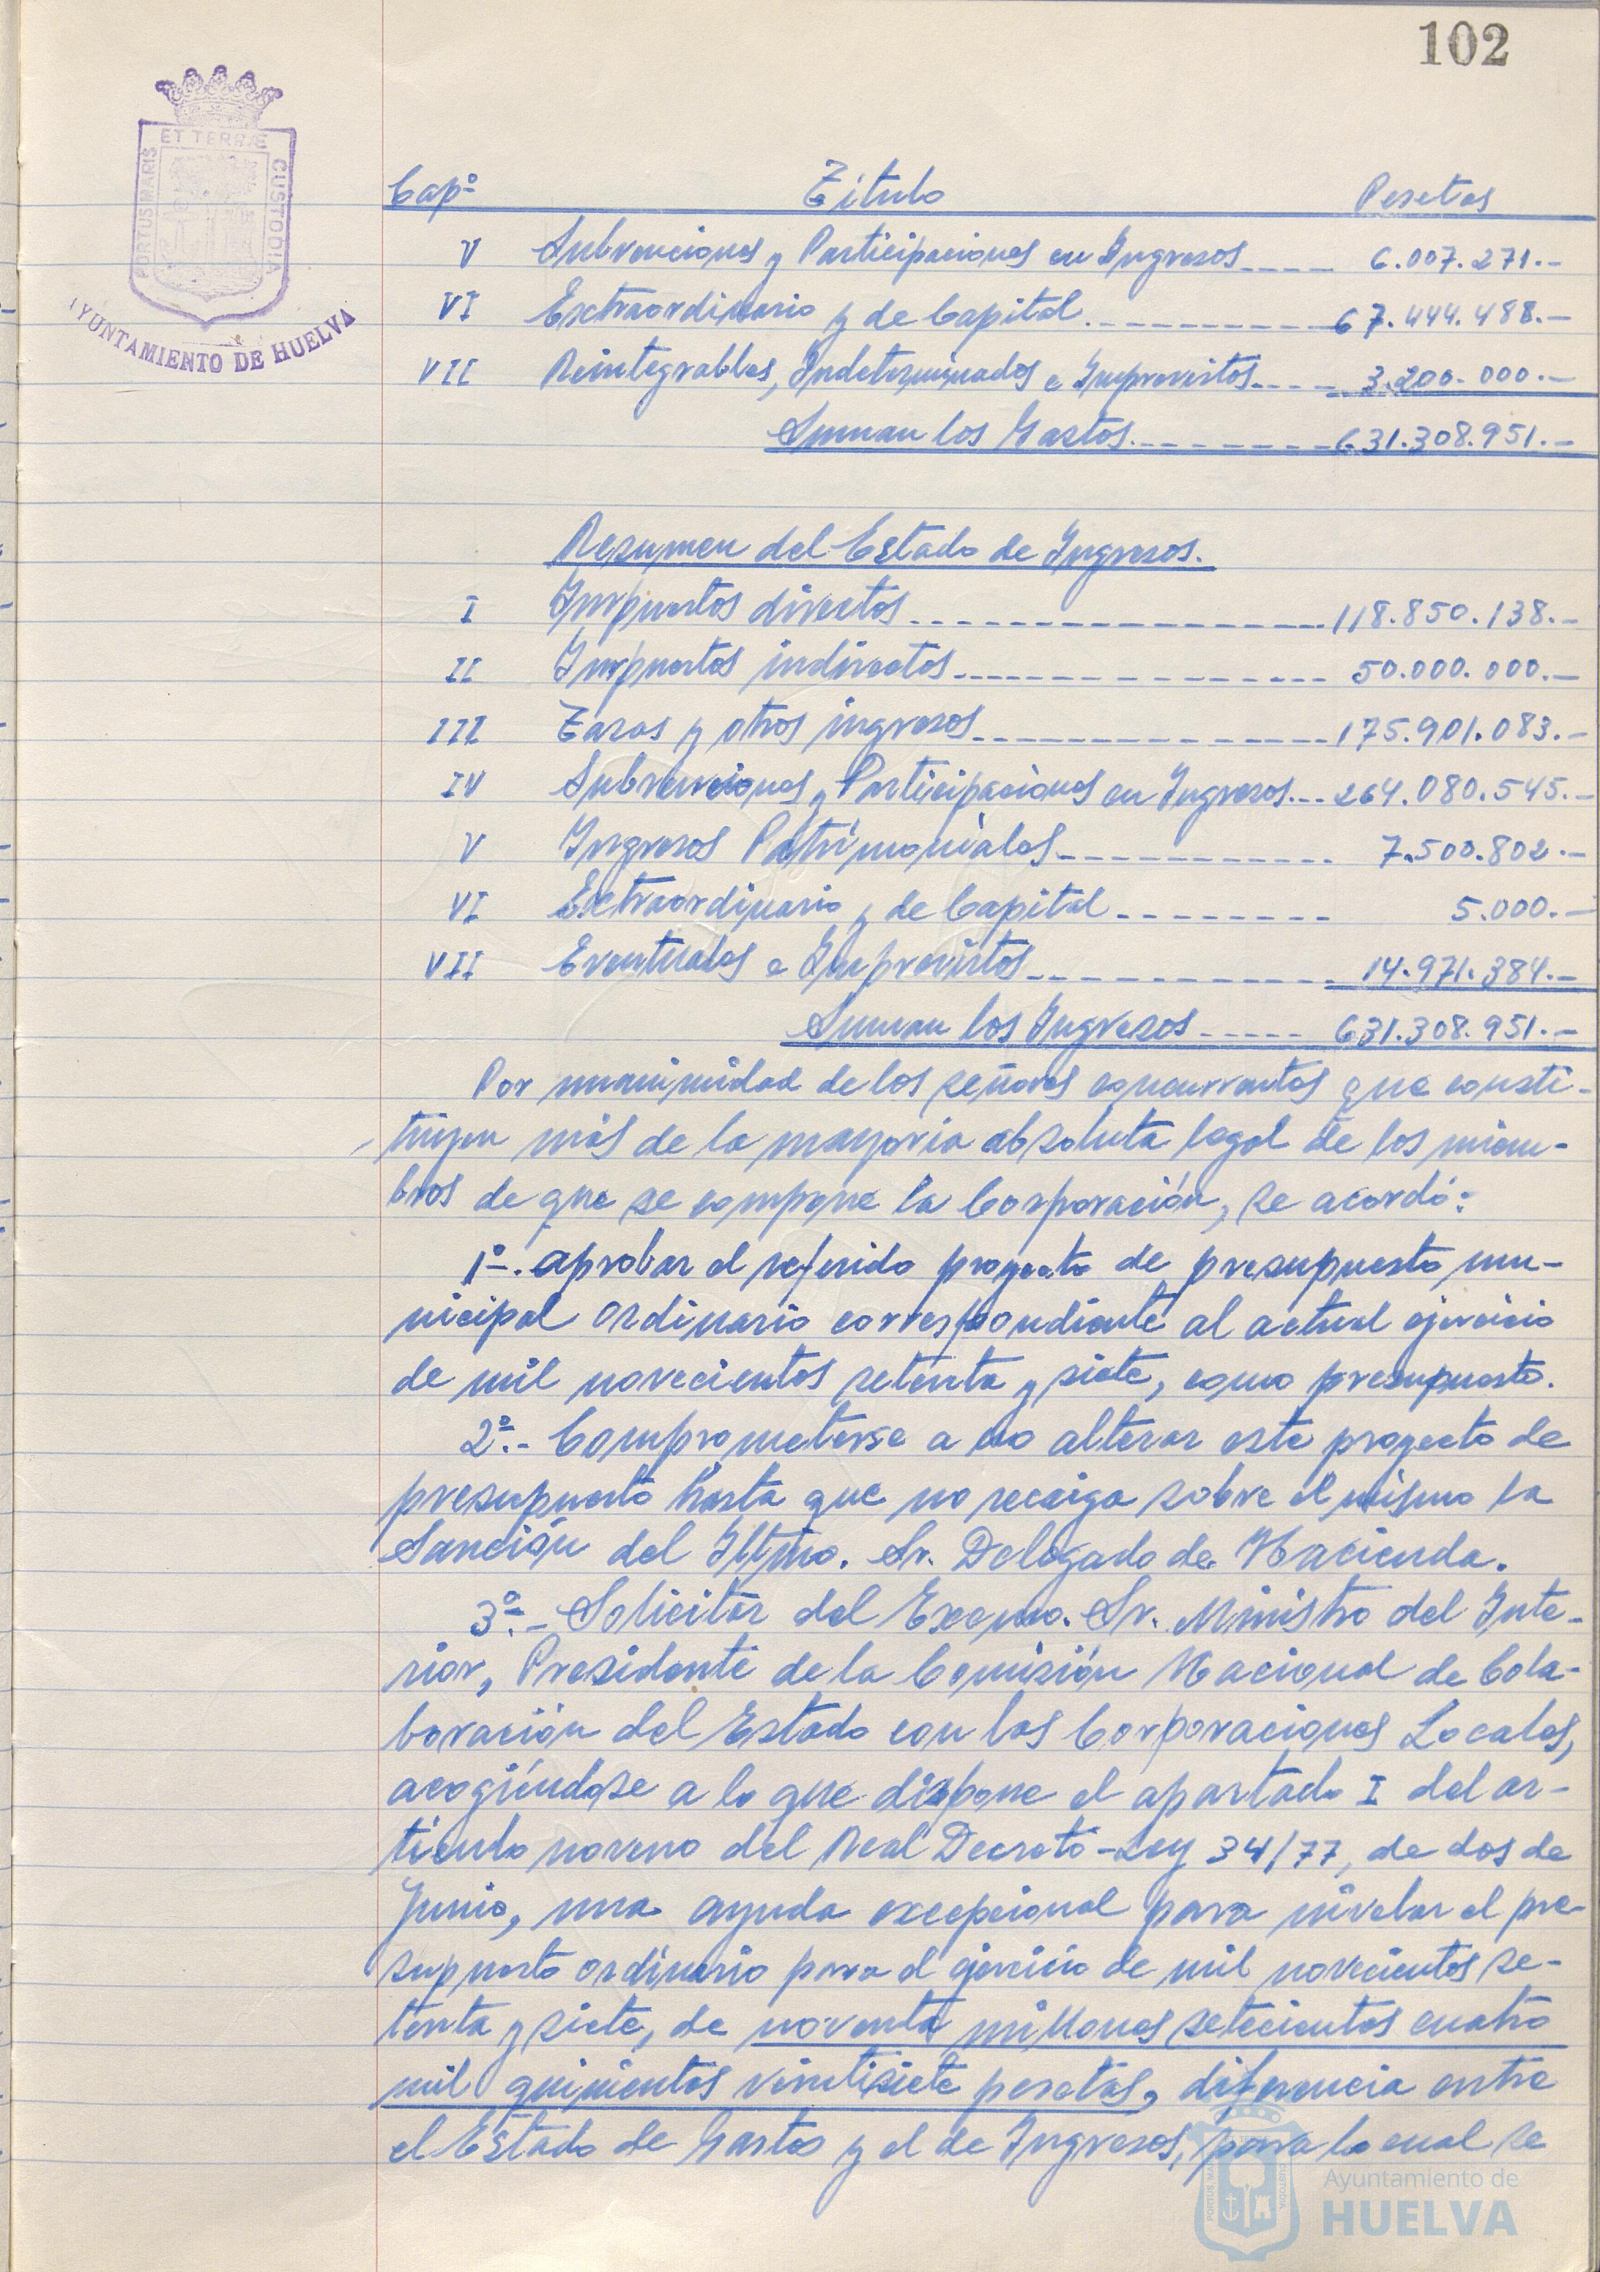 102
ET TERRÆ
PORTUS MARIS
CUSTODIA
AYUNTAMIENTO DE HUELVA
Capº Titulo Pesetas
V Subvenciones y Participaciones en Ingresos---- 6.007.271.-
VI Extraordinario y de Capital.----------67.444.488.-
VII Reintegrables, Indeterminados e Imprevistos.---- 3.200.000.-
Suman los Gastos.--------631.308.951.-
Resumen del Estado de Ingresos.
I Impuestos directos------------------118.850.138.-
II Impuestos indirectos.---------------- 50.000.000.-
III Tasas y otros ingresos---------------175.901.083.-
IV Subvenciones y Participaciones en Ingresos...-264.080.545.-
V Ingresos Patrimoniales------------ 7.500.802.-
VI Extraordinario y de Capital-------- 5.000.-
VII Eventuales e Imprevistos------------ 14.971.384.-
Suman los Ingresos----- 631.308.951.-
Por unanimidad de los señores concurrentes que consti-
tuyen más de la mayoria absoluta legal de los miem-
bros de que se compone la Corporación, se acordó:
1º-. aprobar el referido proyecto de presupuesto mu-
nicipal ordinario correspondiente al actual ejercicio
de mil novecientos setenta y siete, como presupuesto.
2º.- Comprometerse a no alterar este proyecto de
presupuesto hasta que no recaiga sobre el mismo la
Sanción del Iltmo. Sr. Delegado de Hacienda.
3º.- Solicitar del Excmo. Sr. Ministro del Inte-
rior, Presidente de la Comisión Nacional de Cola-
boración del Estado con las Corporaciones Locales,
acogiéndose a lo que dispone el apartado I del ar-
tículo noveno del Real Decreto-Ley 34/77, de dos de
Junio, una ayuda excepcional para nivelar el pre-
supuesto ordinario para el ejercicio de mil novecientos se-
tenta y siete, de noventa millones setecientos cuatro
mil quinientos veintisiete pesetas, diferencia entre
el Estado de Gastos y el de Ingresos, para lo cual se
Ayuntamiento de
HUELVA